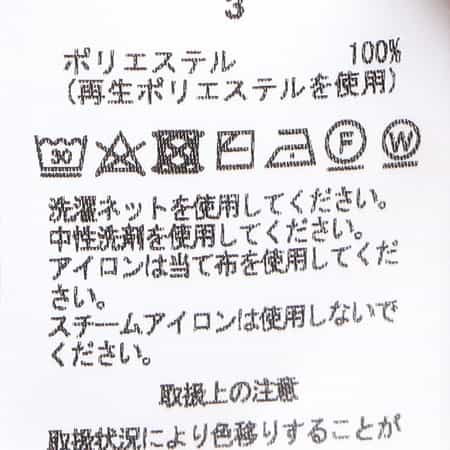 3
ポリエステル 100%
(再生ポリエステルを使用)
30 F W
洗濯ネットを使用してください。
中性洗剤を使用してください。
アイロンは当て布を使用してくだ
さい。
スチームアイロンは使用しないで
ください。
取扱上の注意
取扱状況により色移りすることが